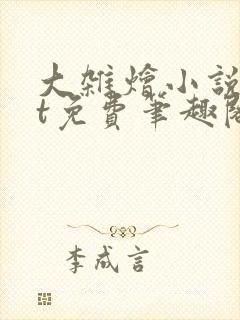 大雜燴小說
t免費筆趣閣
李成言